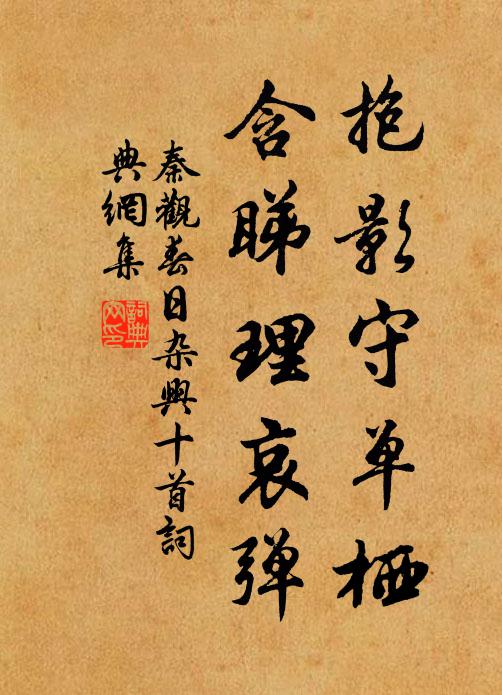 抱影守单栖
含睇理哀弹
秦觀春日杂興十首詞
典網集
詞典
网印